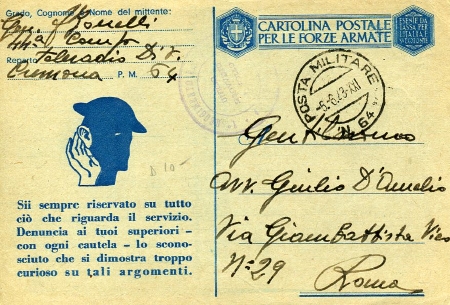 Grado, Cognome e Nome del mittente:
Reparto
Cremona P. M. 64
CARTOLINA POSTALE
PER LE FORZE ARMATE
ESENTE DA
TASSE PER
L'ITALIA E
POSTA MILITARE
5.6.43.XXI
N. 64
Sii sempre riservato su tutto
ciò che riguarda il servizio.
Denuncia ai tuoi superiori –
con ogni cautela – lo scono-
sciuto che si dimostra troppo
curioso su tali argomenti.
Avv. Giulio D'Amelio
Via Giambattista Vico
N° 29
Roma